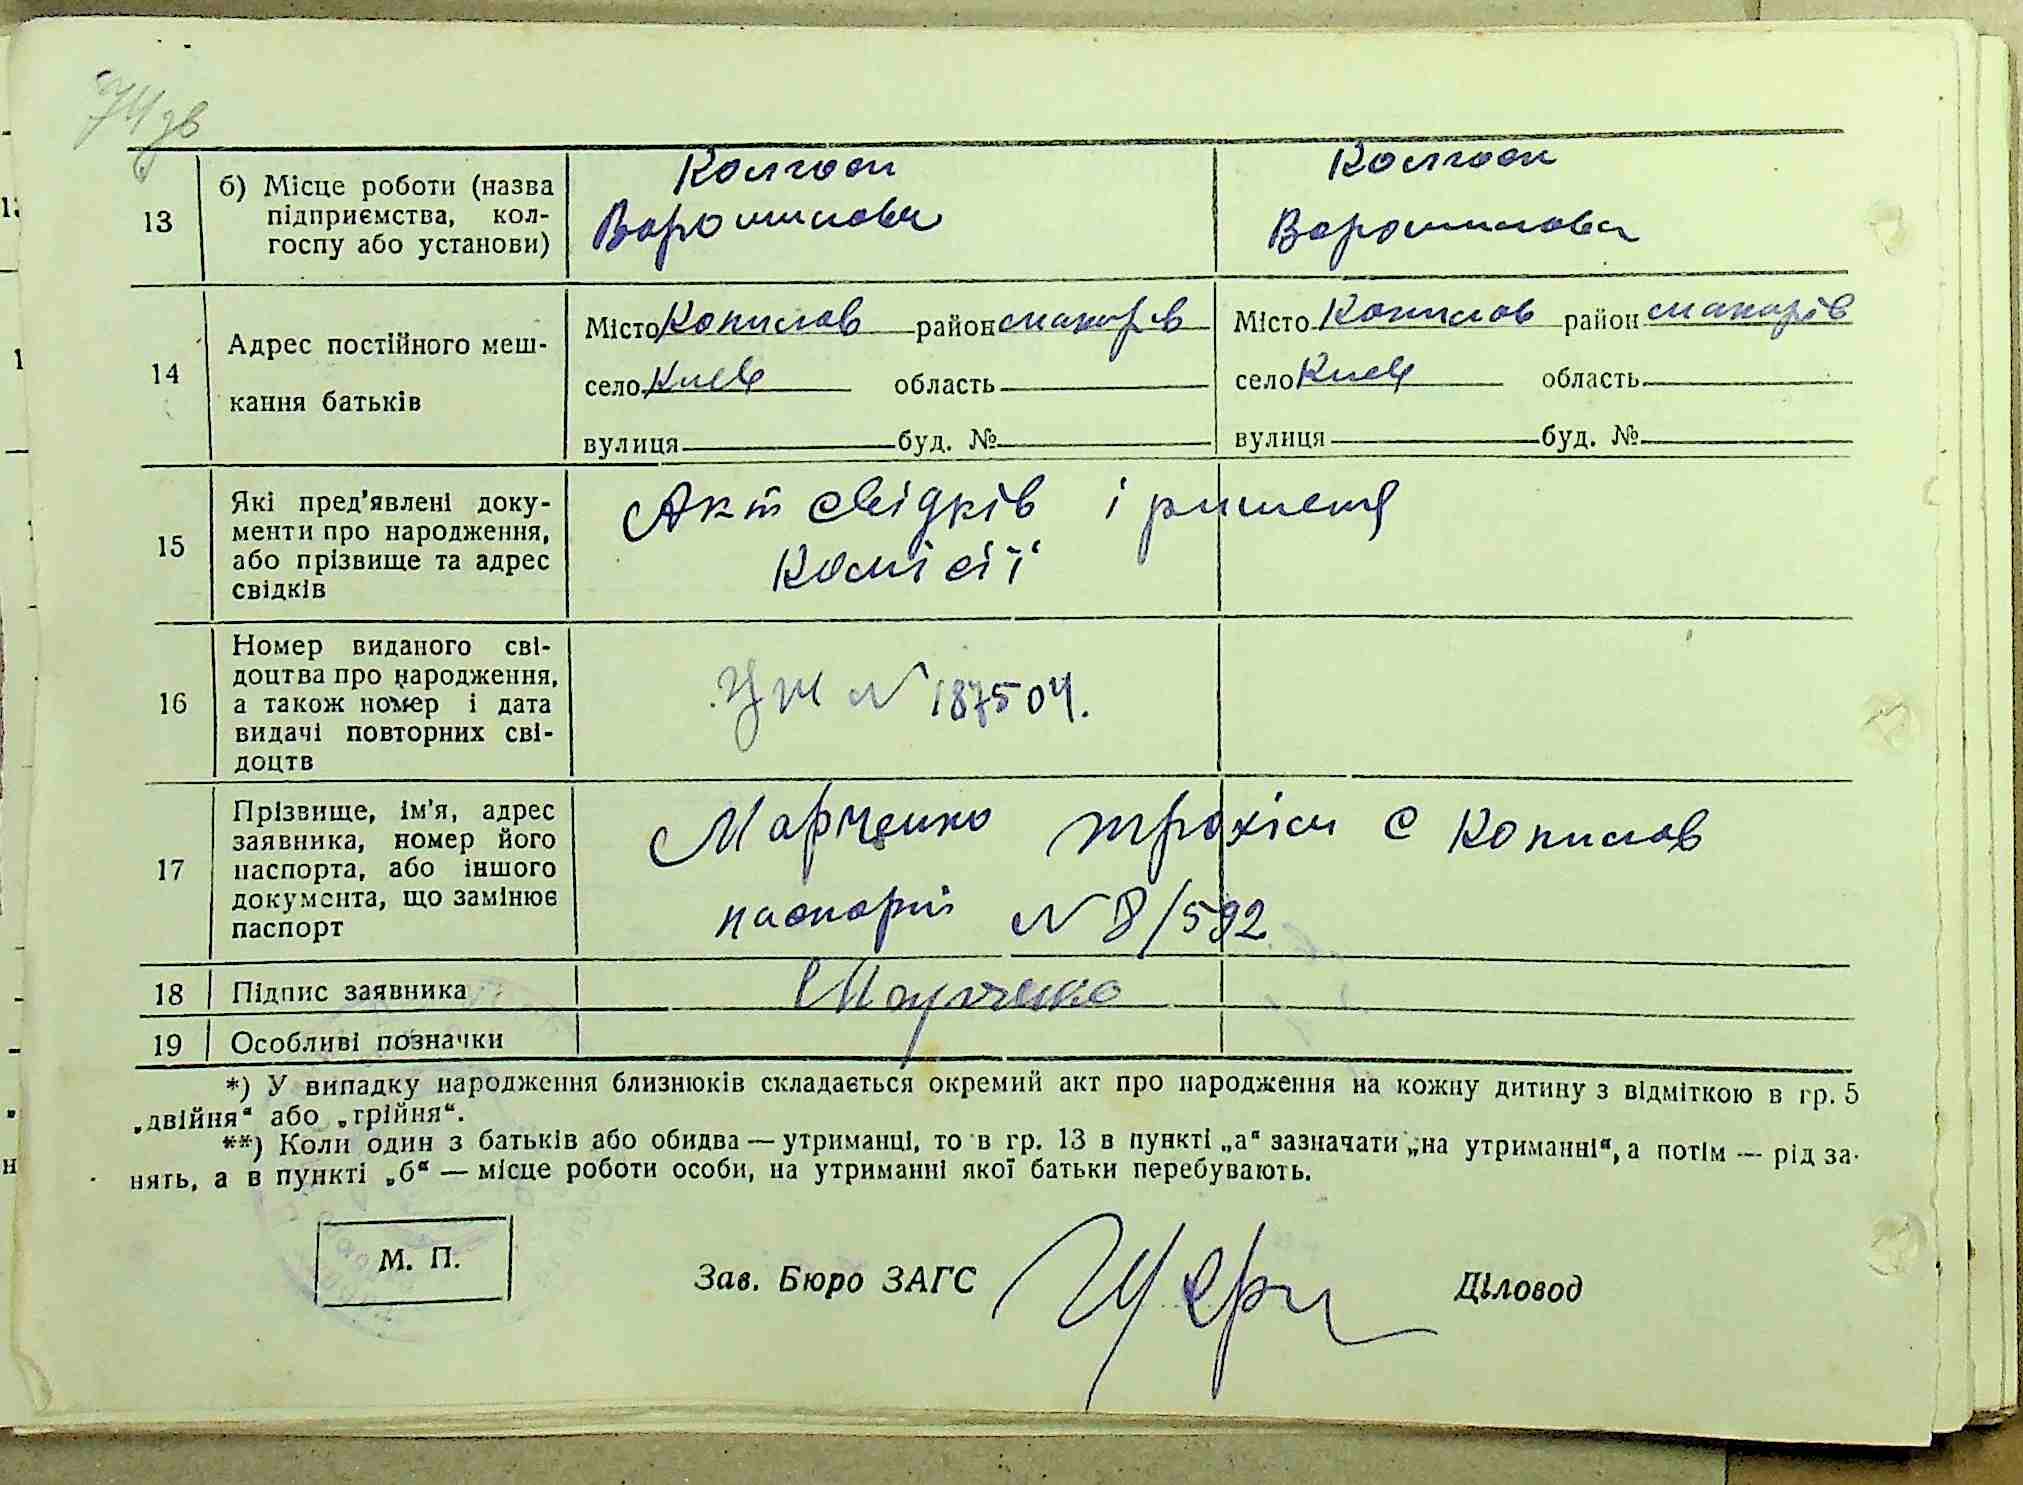 74 зв
13
б) Місце роботи (назва
підприємства, кол-
госпу або установи)
Колгосп
Ворошилова
Колгосп
Ворошилова
14
Адрес постійного меш-
кання батьків
Місто Копилов район Макарів
село Киев область
вулиця буд. №
Місто Копилов район Макарів
село Киев область
вулиця буд. №
15
Які пред'явлені доку-
менти про народження,
або прізвище та адрес
свідків
Акт свідків і ришення
Комісії
16
Номер виданого сві-
доцтва про народження,
а також номер і дата
видачі повторних сві-
доцтв
N 187504.
17
Прізвище, ім'я, адрес
заявника, номер його
паспорта, або іншого
документа, що замінює
паспорт
Марченко Трохим с Копилов
паспорт N 8/592
18
Підпис заявника
Марченко
19
Особливі позначки
*) У випадку народження близнюків складається окремий акт про народження на кожну дитину з відміткою в гр. 5
„двійня“ або „трійня“.
**) Коли один з батьків або обидва — утриманці, то в гр. 13 в пункті „а“ зазначати „на утриманні“, а потім — рід за-
нять, а в пункті „б“ — місце роботи особи, на утриманні якої батьки перебувають.
М. П.
Зав. Бюро ЗАГС
Діловод